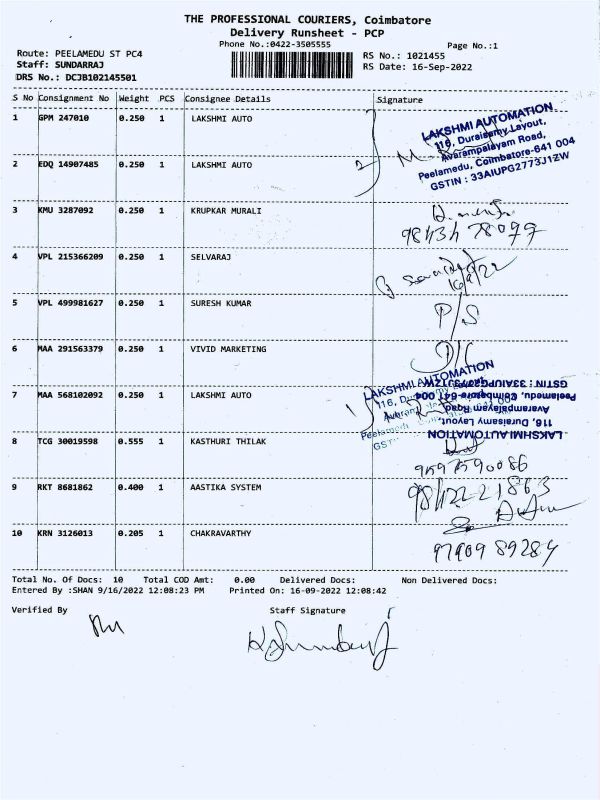 THE PROFESSIONAL COURIERS, Coimbatore
Delivery Runsheet - PCP
Phone No.:0422-3505555
Page No.:1
Route: PEELAMEDU ST PC4
Staff: SUNDARRAJ
DRS No.: DCJB102145501
RS No.: 1021455
RS Date: 16-Sep-2022
S No Consignment No Weight PCS Consignee Details Signature
1 GPM 247010 0.250 1 LAKSHMI AUTO
LAKSHMI AUTOMATION
116, Duraisamy Layout,
Avarampalayam Road,
Peelamedu, Coimbatore-641 004
GSTIN : 33AIUPG2773J1ZW
2 EDQ 14907485 0.250 1 LAKSHMI AUTO
2
3 KMU 3287092 0.250 1 KRUPKAR MURALI
4 VPL 215366209 0.250 1 SELVARAJ
16/9/22
5 VPL 499981627 0.250 1 SURESH KUMAR
P/S
6 MAA 291563379 0.250 1 VIVID MARKETING
D/C
7 MAA 568102092 0.250 1 LAKSHMI AUTO
LAKSHMI AUTOMATION
116, Duraisamy Layout,
LAKSHMI AUTOMATION
116, Duraisamy Layout,
Avarampalayam Road,
Peelamedu, Coimbatore-641 004
GSTIN : 33AIUPG2773J1ZW
8 TCG 30019598 0.555 1 KASTHURI THILAK
9597590086
9 RKT 8681862 0.400 1 AASTIKA SYSTEM
10 KRN 3126013 0.205 1 CHAKRAVARTHY
97909 89284
Total No. Of Docs: 10 Total COD Amt: 0.00 Delivered Docs: Non Delivered Docs:
Entered By :SHAN 9/16/2022 12:08:23 PM Printed On: 16-09-2022 12:08:42
Verified By Staff Signature